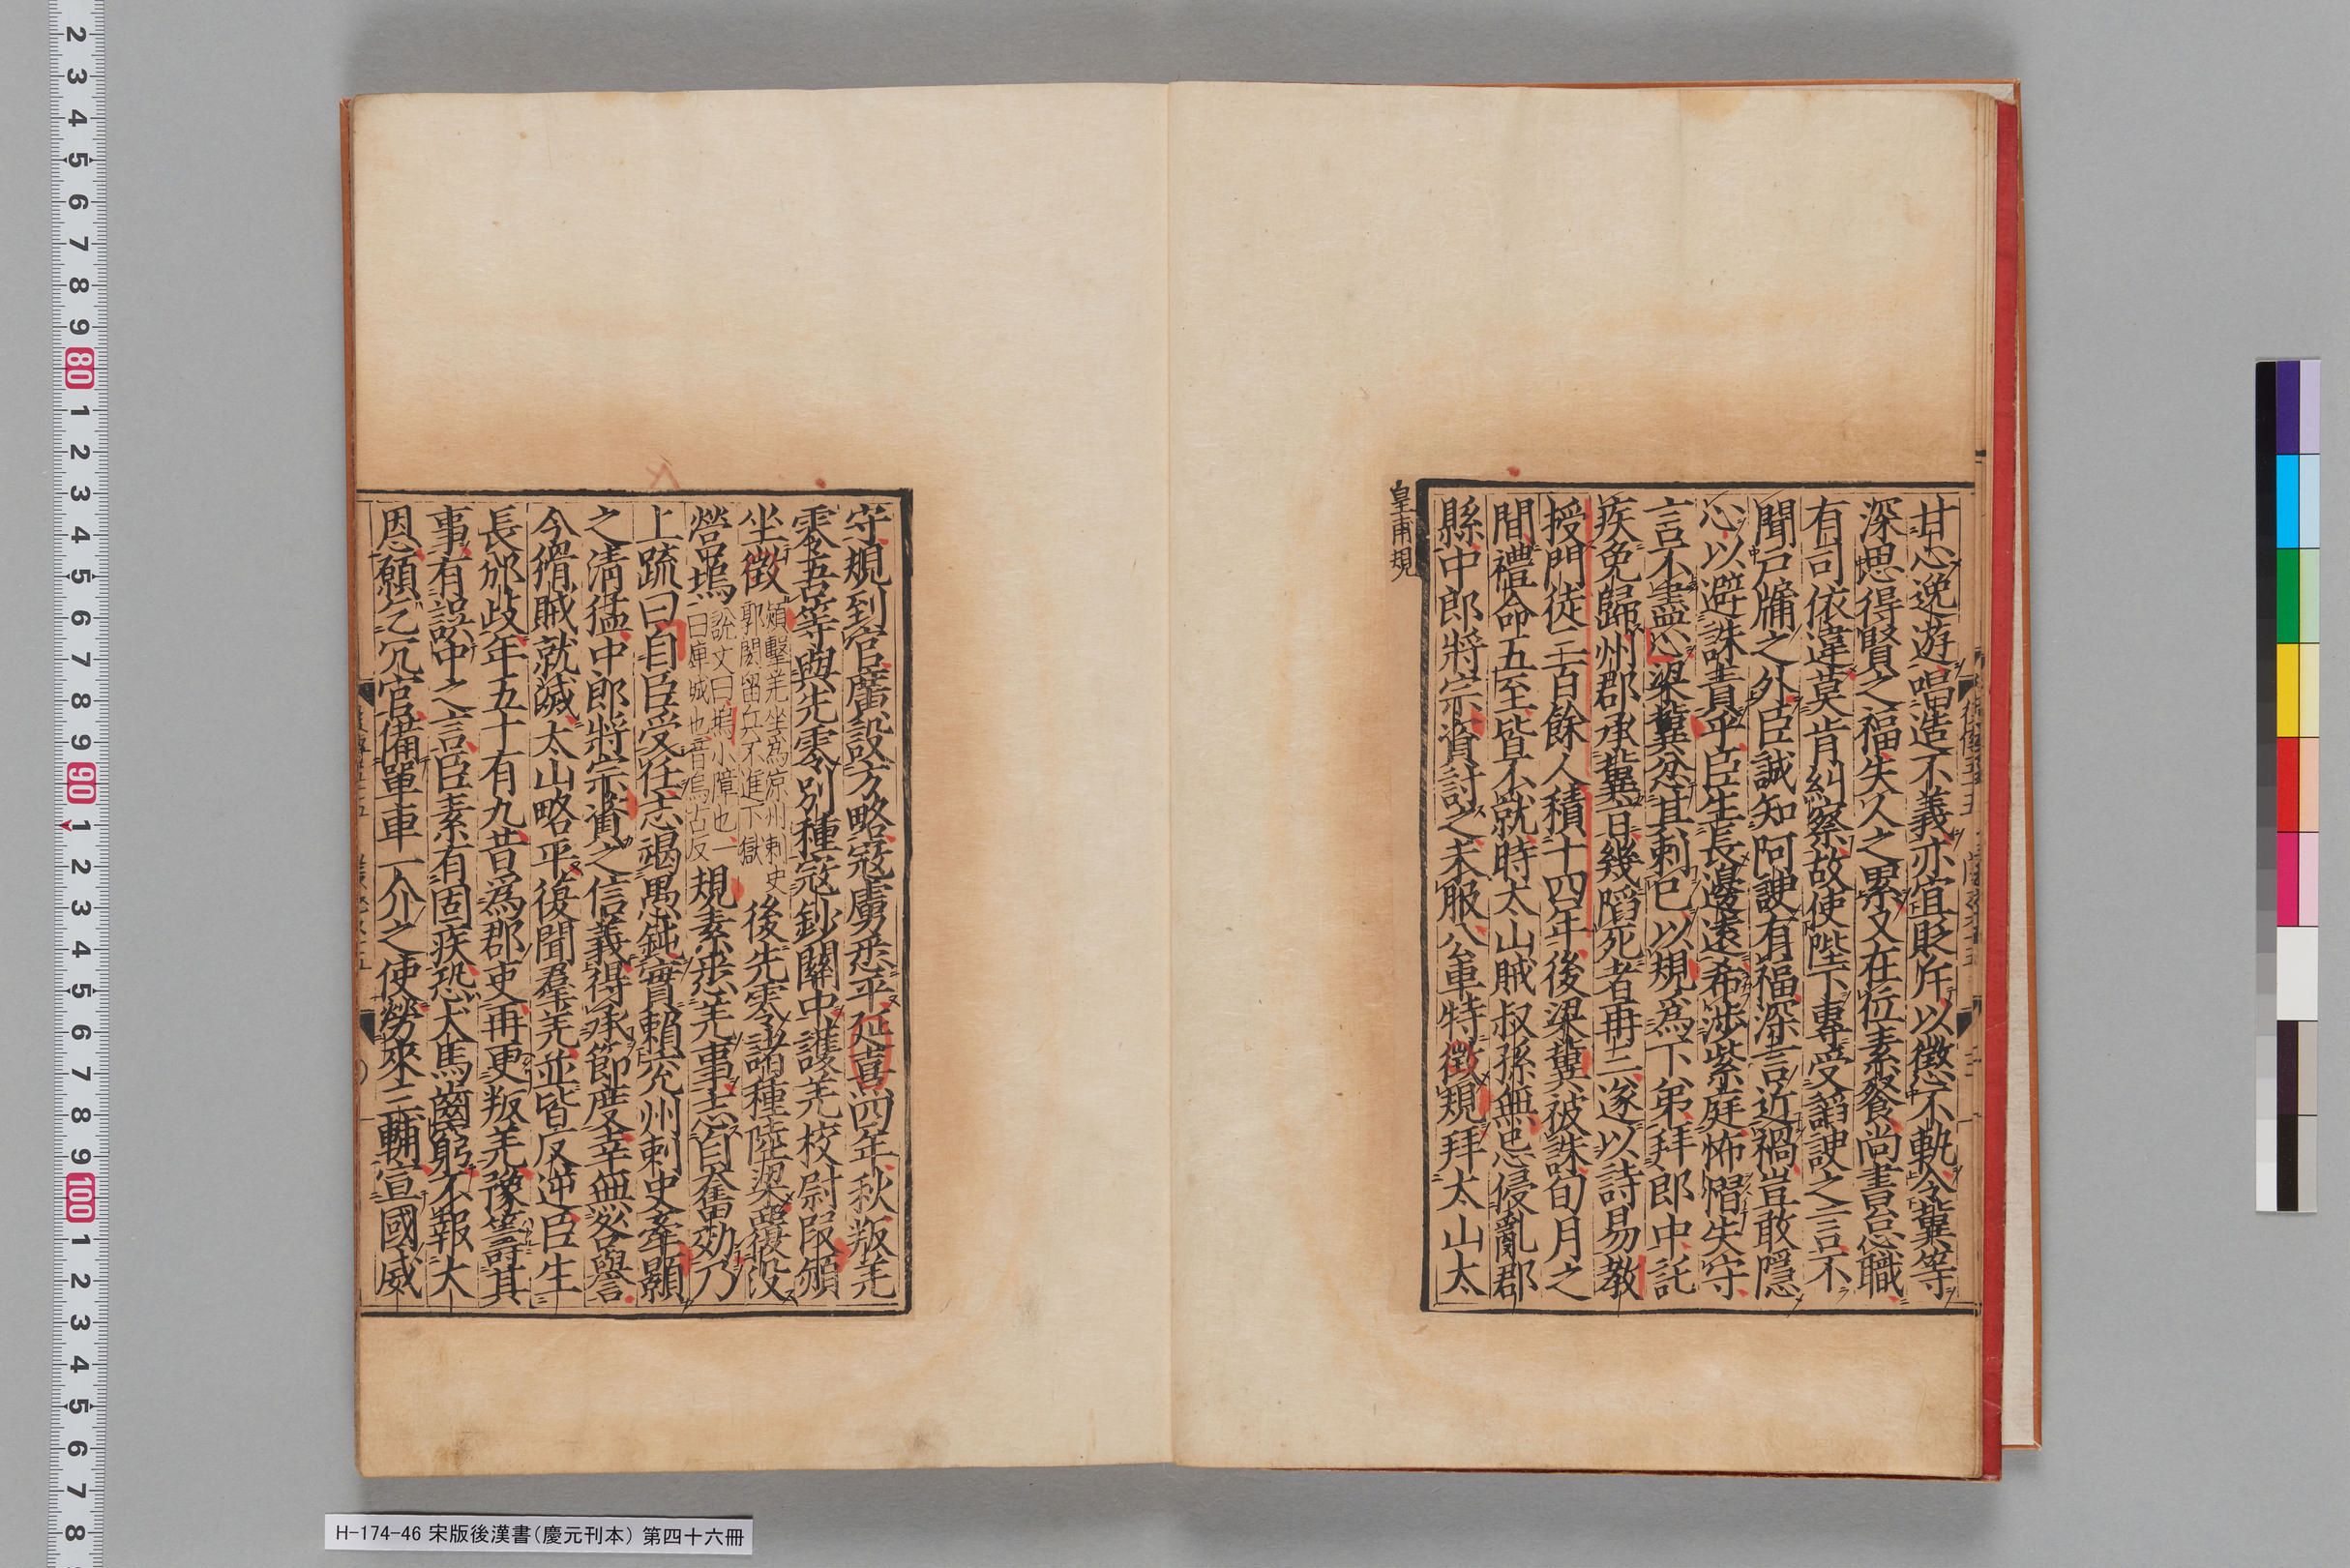 甘心逸遊唱造不義亦宜貶斥以懲不軌令冀等
深思得賢之福失人之累又在位素餐尚書怠職
有司依違莫肯糾察故使陛下專受諂諛之言不
聞戸牖之外臣誠知阿諛有福深言近禍豈敢隱
心以避誅責乎臣生長邊遠希涉紫庭怖慴失守
言不盡心梁冀忿其刺己以規爲下第拜郎中託
疾免歸州郡承冀旨幾陷死者再三遂以詩易教
授門徒三百餘人積十四年後梁冀被誅旬月之
間禮命五至皆不就時太山賊叔孫無忌侵亂郡
縣中郎將宗資討之未服公車特徵規拜太山太
皇甫規
守規到官廣設方略寇虜悉平延熹四年秋叛羌
零吾等與先零別種寇鈔關中護羌校尉段熲
坐徵熲擊羌坐爲涼州刺史郭閎留兵不進下獄後先零諸種陸梁覆沒
營塢說文曰塢小障也一曰庳城也音烏古反規素悉羌事志自奮効乃
上疏曰自臣受任志竭愚鈍實賴兖州刺史牽顥
之清猛中郎將宗資之信義得承節度幸無咎譽
今猾賊就滅太山略平復聞羣羌並皆反逆臣生
長邠岐年五十有九昔爲郡吏再更叛羌豫籌其
事有誤中之言臣素有固疾恐犬馬齒窮不報大
恩願乞冗官備單車一介之使勞來三輔宣國威
H-174-46 宋版後漢書(慶元刊本) 第四十六冊
2
3
4
5
6
7
8
9
80
1
2
3
4
5
6
7
8
9
90
1
2
3
4
5
6
7
8
9
100
1
2
3
4
5
6
7
8